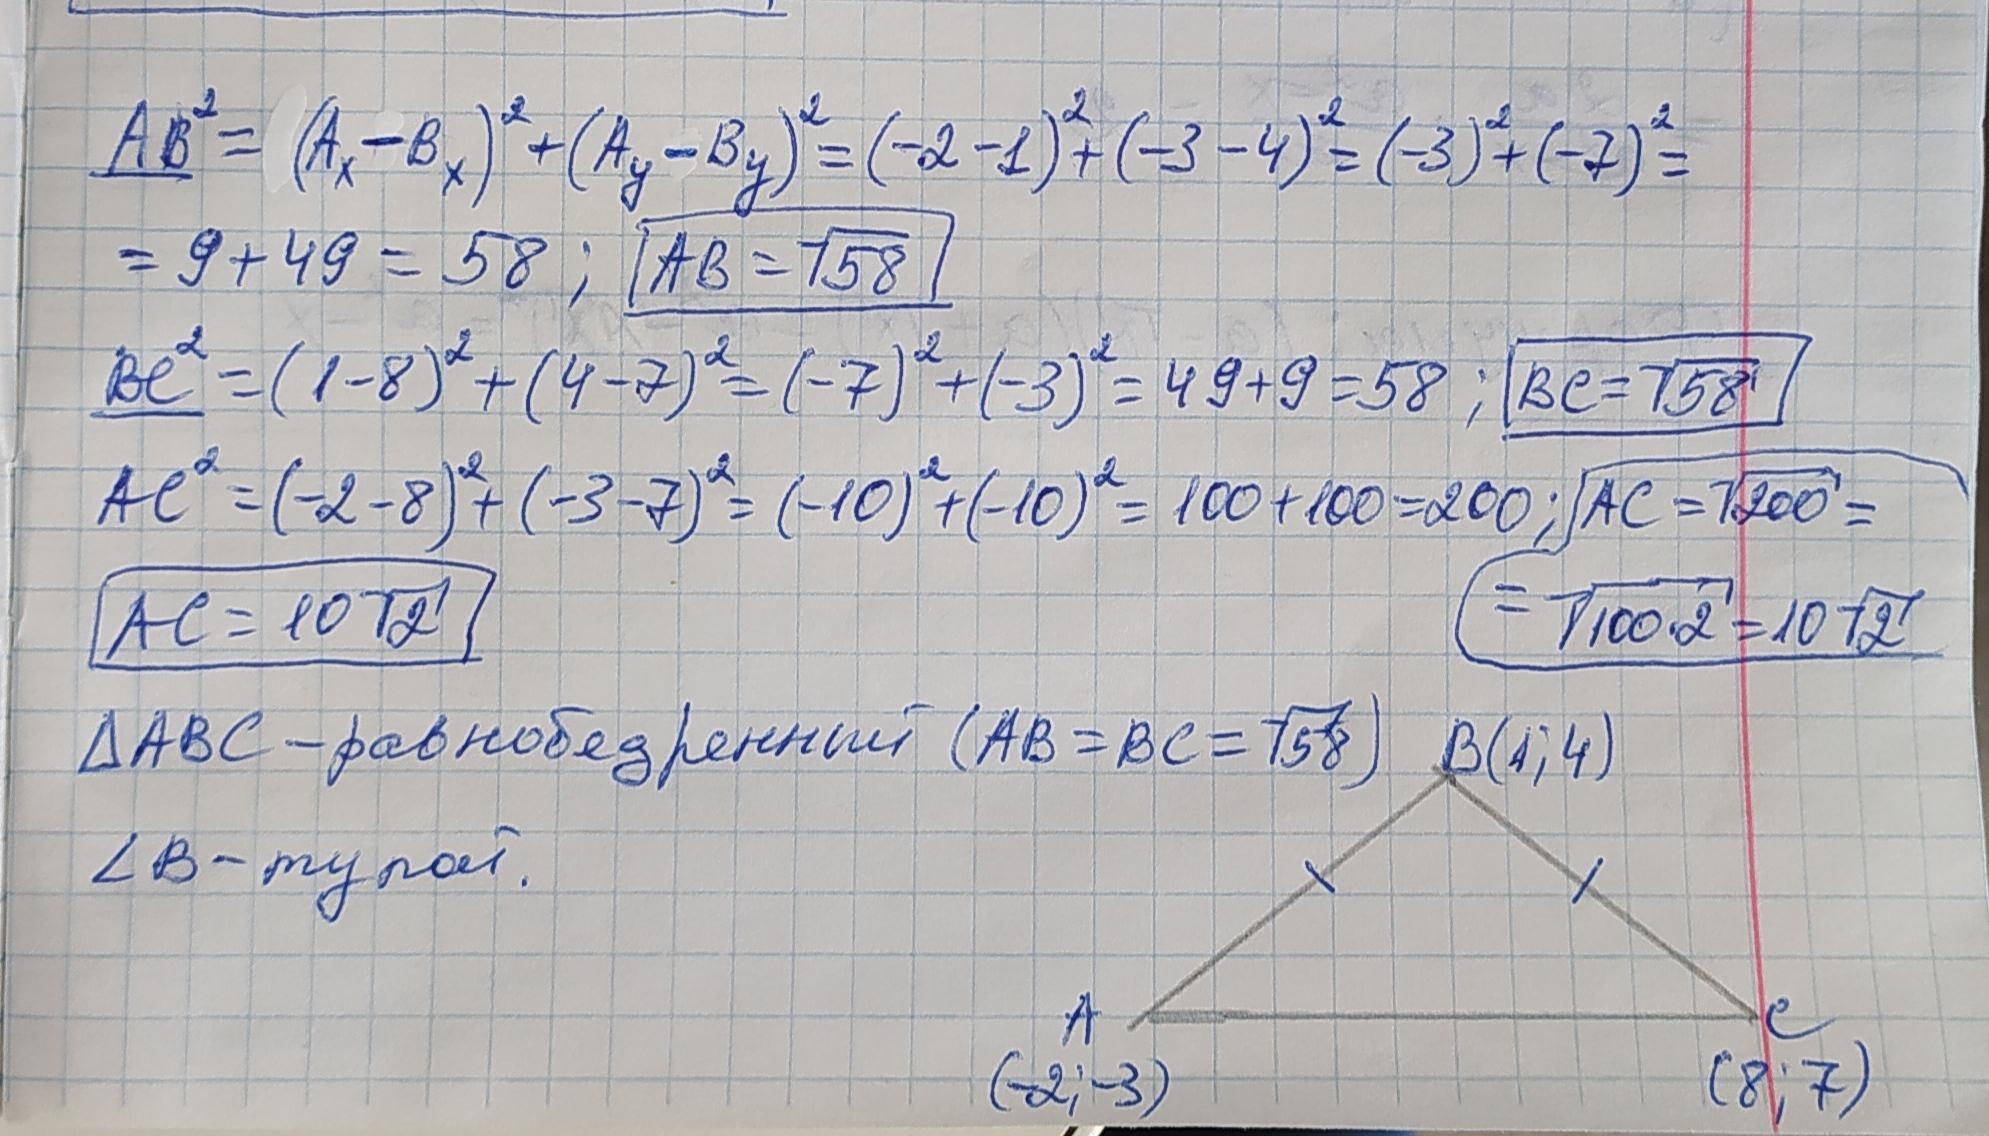 AB² = (Aₓ - Bₓ)² + (Aᵧ - Bᵧ)² = (-2-1)² + (-3-4)² = (-3)² + (-7)² =
= 9 + 49 = 58 ; AB = √58
BC² = (1-8)² + (4-7)² = (-7)² + (-3)² = 49+9 = 58 ; BC = √58
AC² = (-2-8)² + (-3-7)² = (-10)² + (-10)² = 100+100 = 200 ; AC = √200 =
= √100·2 = 10√2
AC = 10√2
ΔABC - равнобедренный (AB = BC = √58)
B(1; 4)
∠B - тупой.
A
(-2; -3)
C
(8; 7)